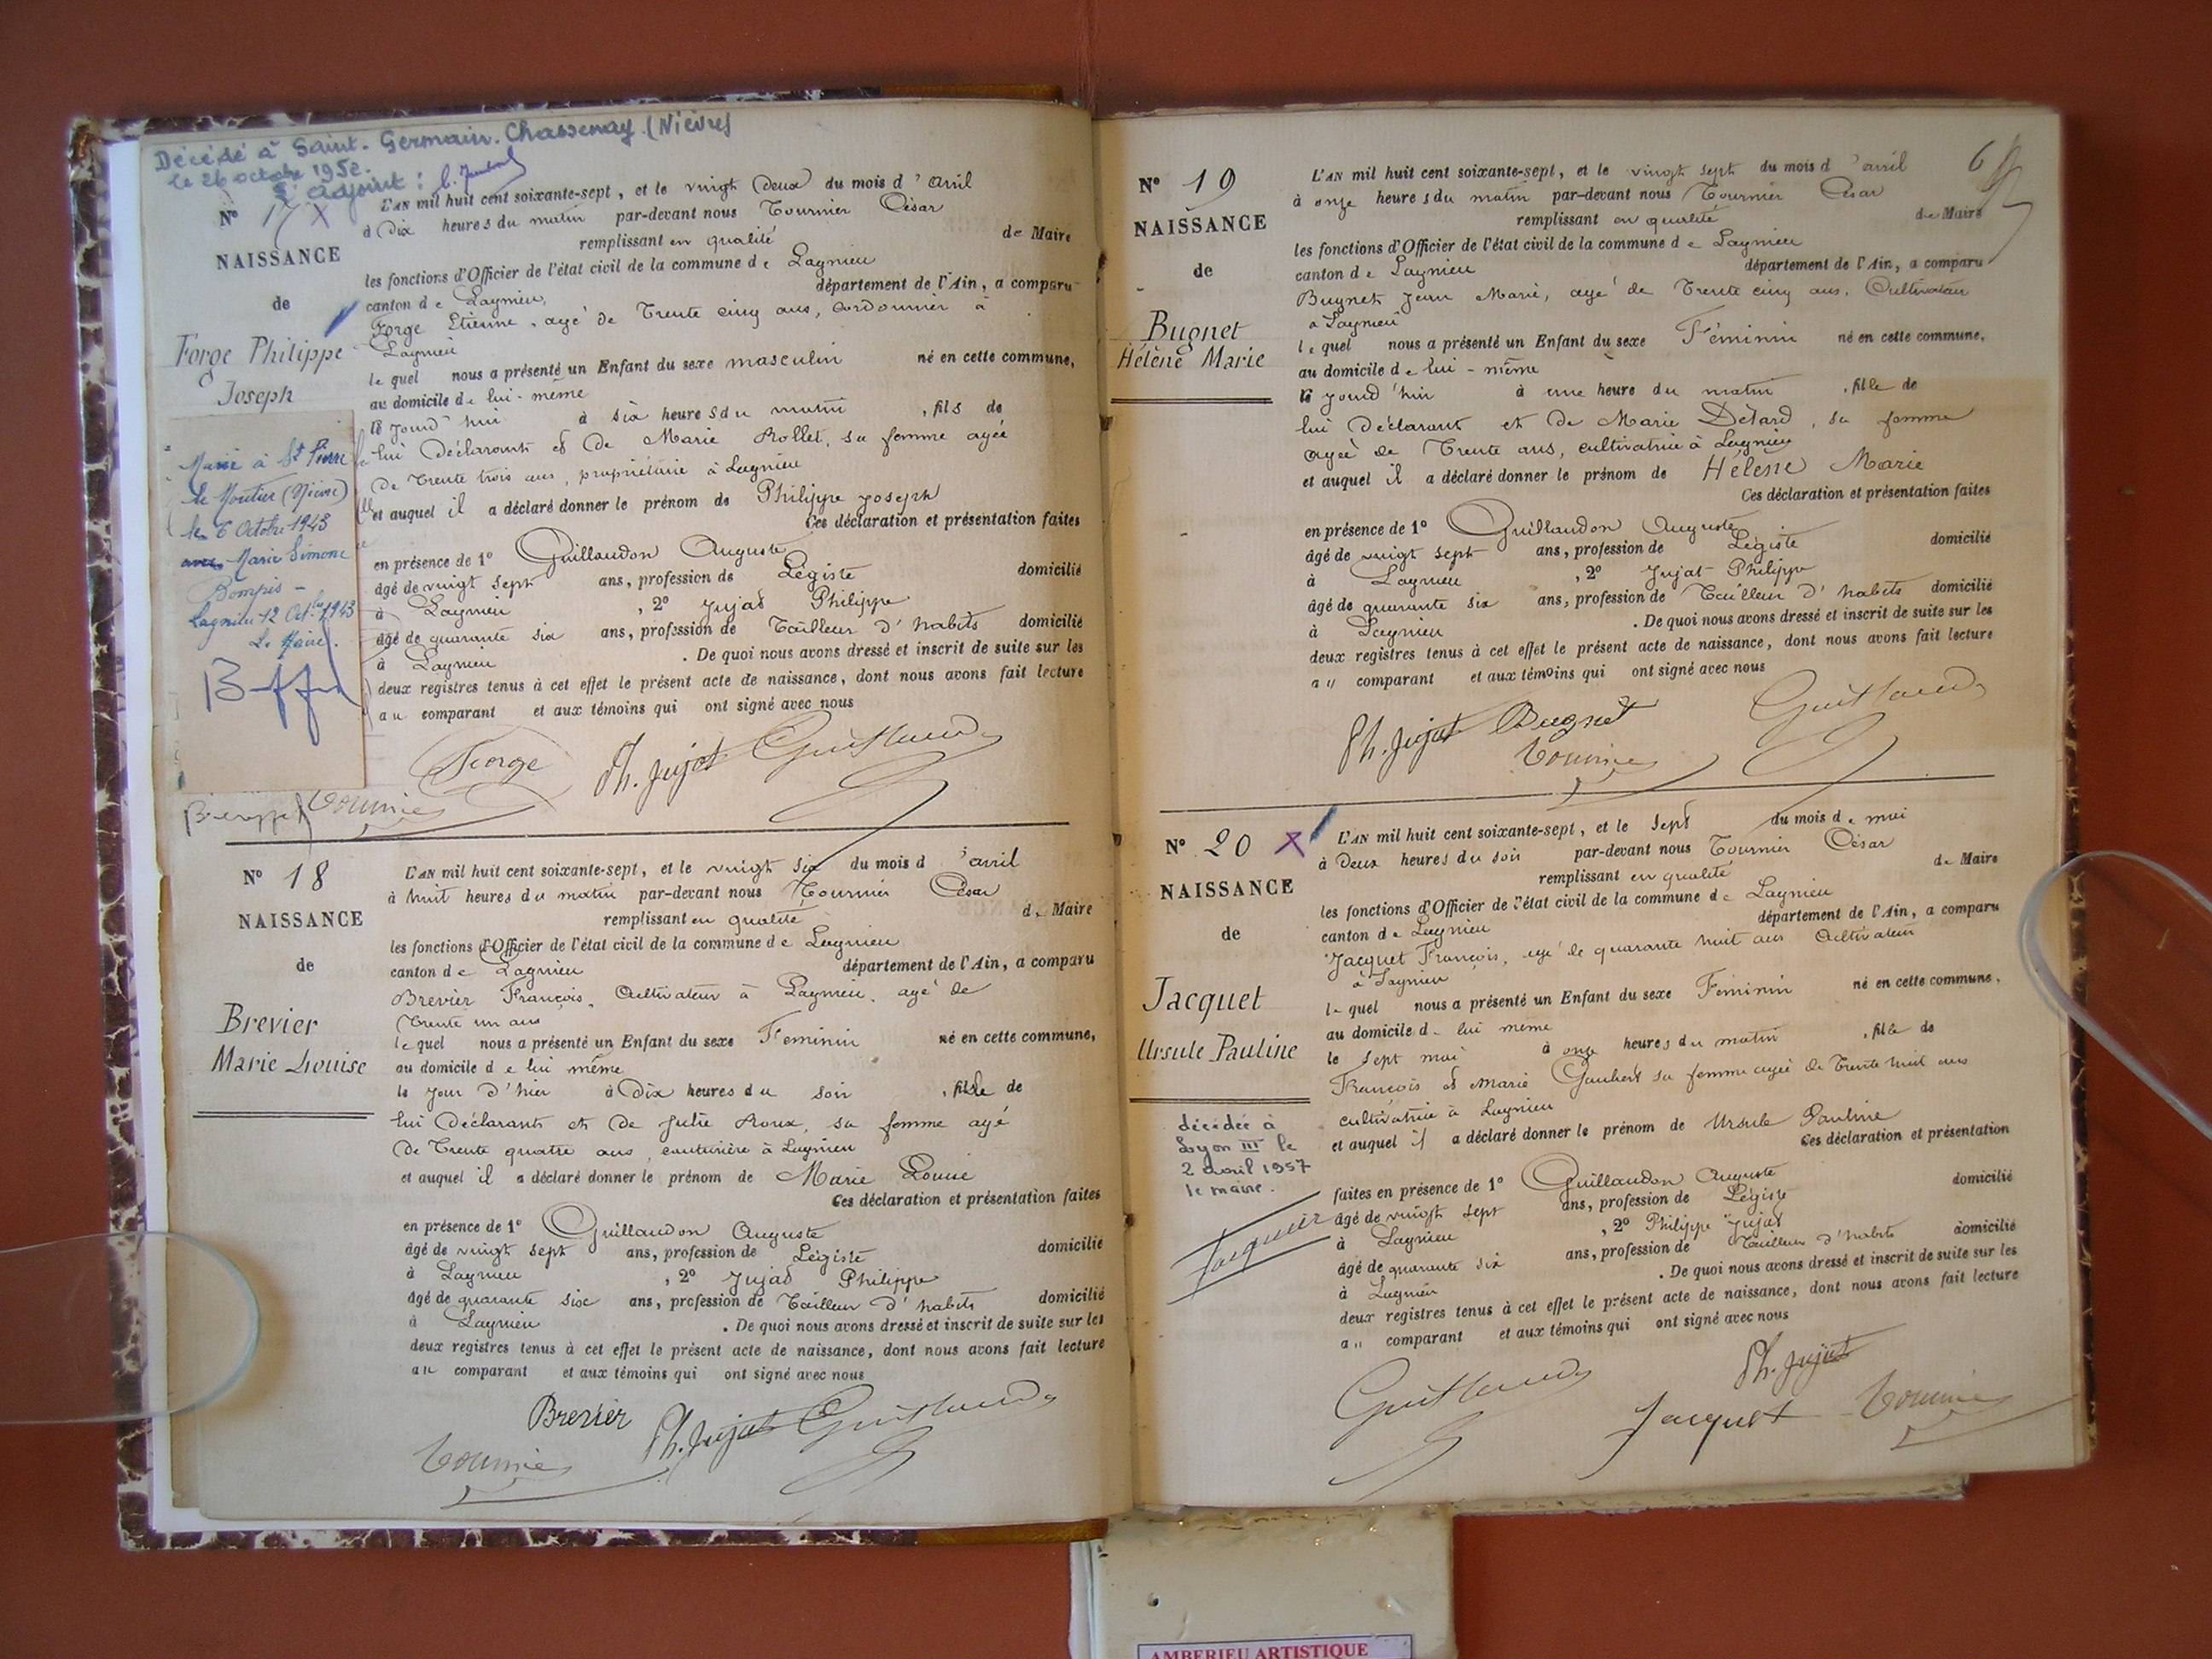 Décédé à Saint-Germain-Chassenay (Nièvre)
le 26 octobre 1952.
L'adjoint :
N° 17 X
NAISSANCE
de
Forge Philippe
Joseph
Marié à St Pierre
le Moutier (Nièvre)
le 6 Octobre 1943
avec Marie Simone
Lagnieu 12 Oct. 1943
Le Maire.
L'AN mil huit cent soixante-sept, et le vingt deux du mois d'avril
à Dix heures du matin par-devant nous Tournier César
remplissant en qualité de Maire
les fonctions d'Officier de l'état civil de la commune de Lagnieu
canton de Lagnieu, département de l'Ain, a comparu
Forge Etienne, agé de Trente cinq ans, cordonnier à
Lagnieu
lequel nous a présenté un Enfant du sexe masculin né en cette commune,
au domicile de lui-même
le jourd'hui à six heures du matin, fils de
lui déclarant et de Marie Rollet, sa femme agée
de Trente trois ans, propriétaire à Lagnieu
et auquel il a déclaré donner le prénom de Philippe Joseph
Ces déclaration et présentation faites
en présence de 1° Guillaudon Auguste
âgé de vingt sept ans, profession de Légiste domicilié
à Lagnieu, 2° Jujat Philippe
âgé de quarante six ans, profession de Tailleur d'habits domicilié
à Lagnieu. De quoi nous avons dressé et inscrit de suite sur les
deux registres tenus à cet effet le présent acte de naissance, dont nous avons fait lecture
au comparant et aux témoins qui ont signé avec nous
Forge Ph. Jujat Guillaudon
Tournier
N° 18
NAISSANCE
de
Brevier
Marie Louise
L'AN mil huit cent soixante-sept, et le vingt six du mois d'avril
à huit heures du matin par-devant nous Tournier César
remplissant en qualité de Maire
les fonctions d'Officier de l'état civil de la commune de Lagnieu
canton de Lagnieu département de l'Ain, a comparu
Brevier François, Cultivateur à Lagnieu, agé de
Trente un ans
lequel nous a présenté un Enfant du sexe Féminin né en cette commune,
au domicile de lui même
le jour d'hier à Dix heures du soir, fille de
lui déclarant et de Julie Roux, sa femme agé
de Trente quatre ans, couturière à Lagnieu
et auquel il a déclaré donner le prénom de Marie Louise
Ces déclaration et présentation faites
en présence de 1° Guillaudon Auguste
âgé de vingt sept ans, profession de Légiste domicilié
à Lagnieu, 2° Jujat Philippe
âgé de quarante six ans, profession de Tailleur d'habits domicilié
à Lagnieu. De quoi nous avons dressé et inscrit de suite sur les
deux registres tenus à cet effet le présent acte de naissance, dont nous avons fait lecture
au comparant et aux témoins qui ont signé avec nous
Brevier Ph. Jujat Guillaudon
Tournier
6
N° 19
NAISSANCE
de
Bugnet
Hélène Marie
L'AN mil huit cent soixante-sept, et le vingt sept du mois d'avril
à onze heures du matin par-devant nous Tournier César
remplissant en qualité de Maire
les fonctions d'Officier de l'état civil de la commune de Lagnieu
canton de Lagnieu département de l'Ain, a comparu
Bugnet Jean Marie, agé de Trente cinq ans, Cultivateur
à Lagnieu
lequel nous a présenté un Enfant du sexe Féminin né en cette commune,
au domicile de lui-même
le jourd'hui à une heure du matin, fille de
lui déclarant et de Marie Détard, sa femme
agée de Trente ans, cultivatrice à Lagnieu
et auquel il a déclaré donner le prénom de Hélène Marie
Ces déclaration et présentation faites
en présence de 1° Guillaudon Auguste
âgé de vingt sept ans, profession de Légiste domicilié
à Lagnieu, 2° Jujat Philippe
âgé de quarante six ans, profession de Tailleur d'habits domicilié
à Lagnieu. De quoi nous avons dressé et inscrit de suite sur les
deux registres tenus à cet effet le présent acte de naissance, dont nous avons fait lecture
au comparant et aux témoins qui ont signé avec nous
Ph. Jujat Bugnet Guillaudon
Tournier
N° 20 X
NAISSANCE
de
Jacquet
Ursule Pauline
décédée à
Lyon III le
2 avril 1957
le maire.
L'AN mil huit cent soixante-sept, et le sept du mois de mai
à Deux heures du soir par-devant nous Tournier César
remplissant en qualité de Maire
les fonctions d'Officier de l'état civil de la commune de Lagnieu
canton de Lagnieu département de l'Ain, a comparu
Jacquet François, agé de quarante huit ans Cultivateur
à Lagnieu
lequel nous a présenté un Enfant du sexe Féminin né en cette commune,
au domicile de lui même
le sept mai à onze heures du matin, fille de
François et Marie Gaubert sa femme agée de Trente huit ans
cultivatrice à Lagnieu
et auquel il a déclaré donner le prénom de Ursule Pauline
Ces déclaration et présentation
faites en présence de 1° Guillaudon Auguste
âgé de vingt sept ans, profession de Légiste domicilié
à Lagnieu, 2° Philippe Jujat
âgé de quarante six ans, profession de Tailleur d'habits domicilié
à Lagnieu. De quoi nous avons dressé et inscrit de suite sur les
deux registres tenus à cet effet le présent acte de naissance, dont nous avons fait lecture
au comparant et aux témoins qui ont signé avec nous
Guillaudon Ph. Jujat
Jacquet Tournier
AMBERIEU ARTISTIQUE